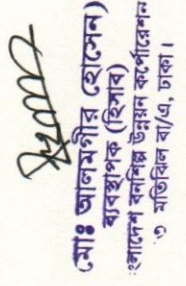 (মোঃ আলমগীর হোসেন)
ব্যবস্থাপক (হিসাব)
ংলাদেশ বনশিল্প উন্নয়ন কর্পোরেশন
৩ মতিঝিল বা/এ, ঢাকা।